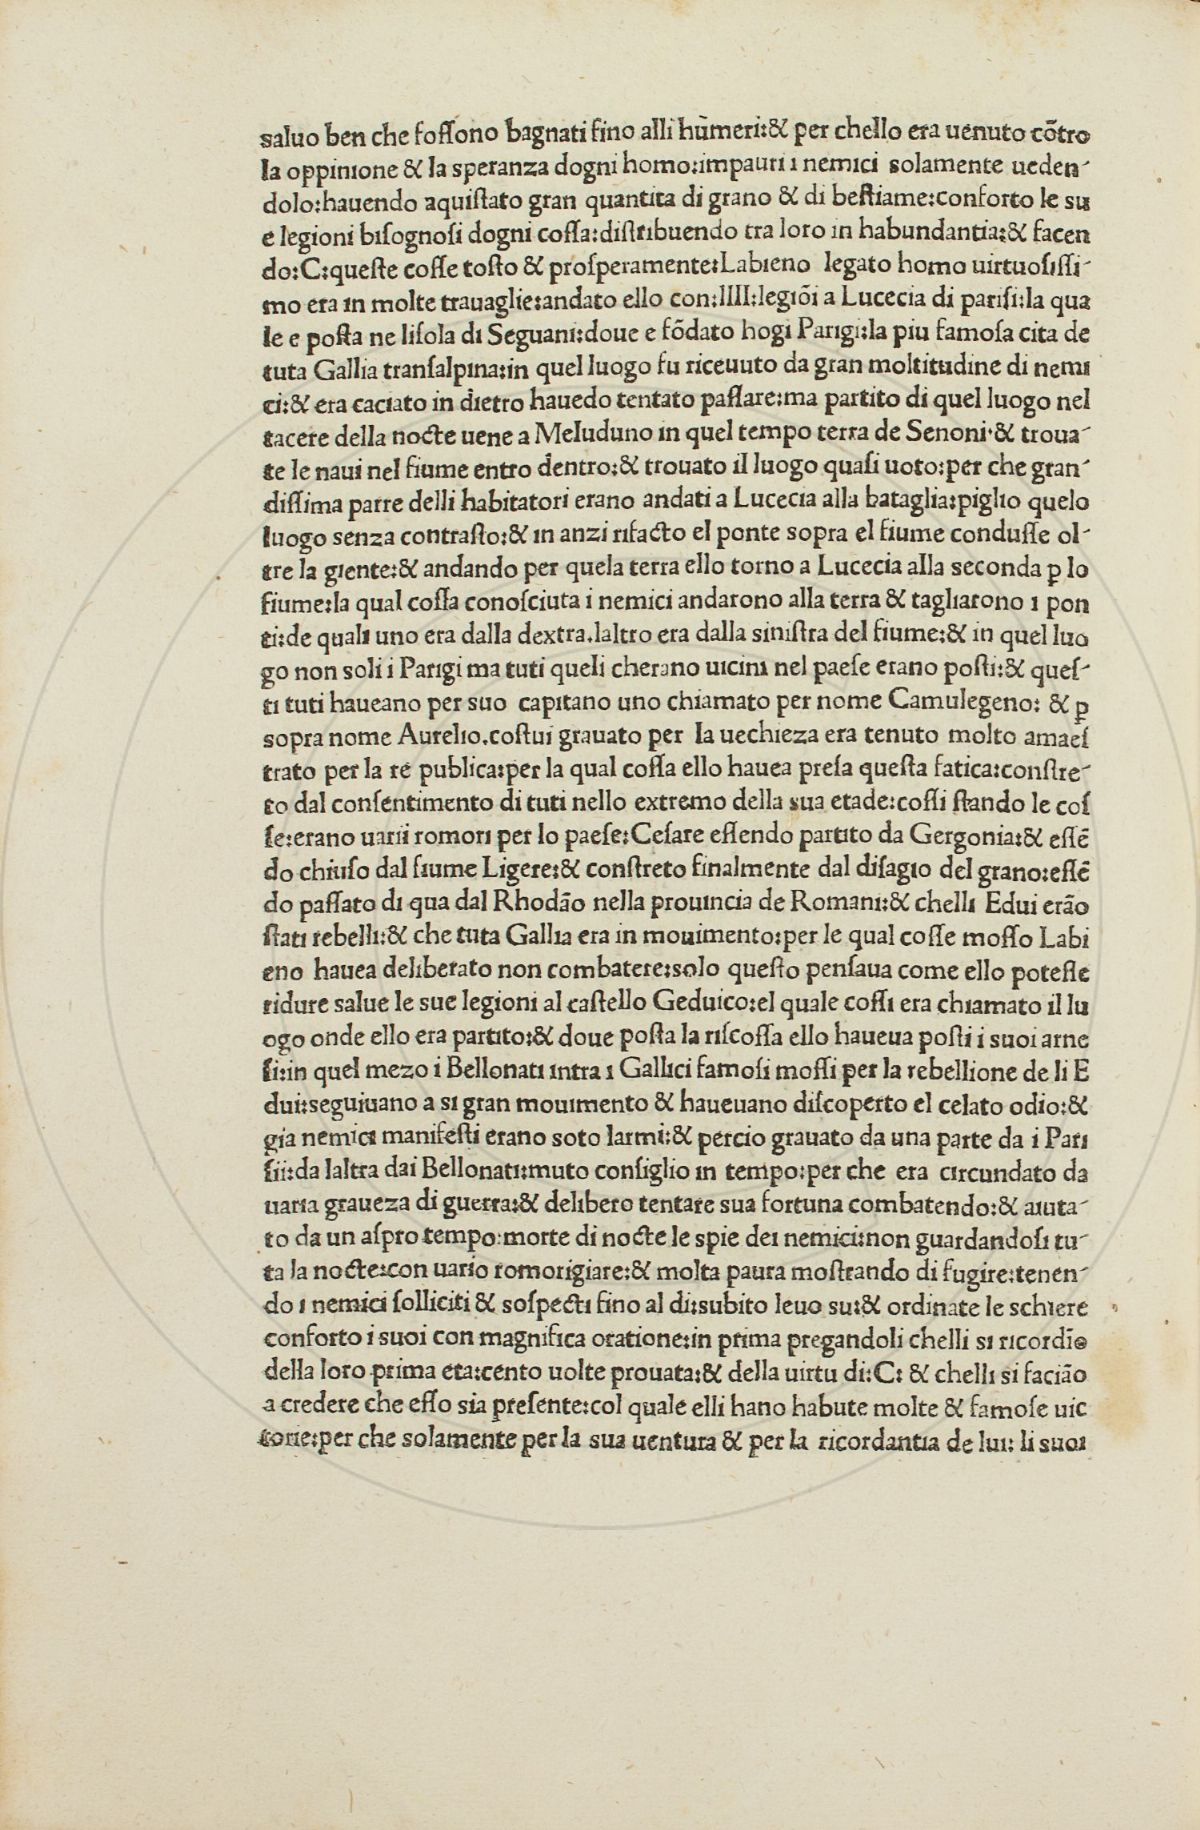 saluo ben che foſſono bagnati fino alli hūmeri:& per chello era uenuto cōtro
la oppinione & la speranza dogni homo:impauri i nemici solamente ueden-
dolo:hauendo aquiſtato gran quantita di grano & di beſtiame:conforto le su
e legioni biſognoſi dogni coſſa:diſtribuendo tra loro in habundantia:& facen
do:C:queſte coſſe toſto & proſperamente:Labieno legato homo uirtuoſiſſi-
mo era in molte trauaglie:andato ello con:IIII:legiōi a Lucecia di pariſi:la qua
le e poſta ne liſola di Seguani:doue e fōdato hogi Parigi:la piu famoſa cita de
tuta Gallia tranſalpina:in quel luogo fu riceuuto da gran moltitudine di nemi
ci:& era caciato in dietro hauedo tentato paſſare:ma partito di quel luogo nel
tacere della nocte uene a Meluduno in quel tempo terra de Senoni·& troua-
te le naui nel fiume entro dentro:& trouato il luogo quaſi uoto:per che gran-
diſſima parre delli habitatori erano andati a Lucecia alla bataglia:piglio quelo
luogo senza contraſto:& in anzi rifacto el ponte sopra el fiume conduſſe ol-
tre la giente:& andando per quela terra ello torno a Lucecia alla seconda ꝑ lo
fiume:la qual coſſa conoſciuta i nemici andarono alla terra & tagliarono i pon
ti:de quali uno era dalla dextra.laltro era dalla siniſtra del fiume:& in quel luo
go non soli i Parigi ma tuti queli cherano uicini nel paeſe erano poſti:& queſ-
ti tuti haueano per suo capitano uno chiamato per nome Camulegeno: & ꝑ
sopra nome Aurelio.coſtui grauato per la uechieza era tenuto molto amaeſ
trato per la re publica:per la qual coſſa ello hauea preſa queſta fatica:conſtre-
to dal conſentimento di tuti nello extremo della sua etade:coſſi ſtando le coſ
ſe:erano uarii romori per lo paeſe:Ceſare eſſendo partito da Gergonia:& eſſē
do chiuſo dal fiume Ligere:& conſtreto finalmente dal diſagio del grano:eſſē
do paſſato di qua dal Rhodāo nella prouincia de Romani:& chelli Edui erāo
ſtati rebelli:& che tuta Gallia era in mouimento:per le qual coſſe moſſo Labi
eno hauea deliberato non combatere:solo queſto penſaua come ello poteſſe
ridure salue le sue legioni al caſtello Geduico:el quale coſſi era chiamato il lu
ogo onde ello era partito:& doue poſta la riſcoſſa ello haueua poſti i suoi arne
ſi:in quel mezo i Bellonati intra i Gallici famoſi moſſi per la rebellione de li E
dui:seguiuano a si gran mouimento & haueuano diſcoperto el celato odio:&
gia nemici manifeſti erano soto larmi:& percio grauato da una parte da i Pari
ſii:da laltra dai Bellonati:muto conſiglio in tempo:per che era circundato da
uaria graueza di guerra:& delibero tentare sua fortuna combatendo:& aiuta-
to da un aſpro tempo:morte di nocte le spie dei nemici:non guardandoſi tu-
ta la nocte:con uario romorigiare:& molta paura moſtrando di fugire:tenen-
do i nemici ſolliciti & soſpecti fino al di:subito leuo su:& ordinate le schiere
conforto i suoi con magnifica oratione:in prima pregandoli chelli si ricordīo
della loro prima eta:cento uolte prouata:& della uirtu di:C: & chelli si faciāo
a credere che eſſo sia preſente:col quale elli hano habute molte & famoſe uic
torie:per che solamente per la sua uentura & per la ricordantia de lui: li suoi